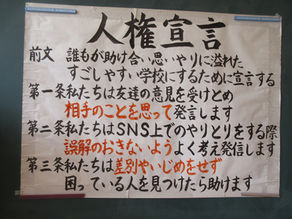 人権宣言
前文 誰もが助け合い思いやりに溢れた
すごしやすい学校にするために宣言する
第一条私たちは友達の意見を受けとめ
相手のことを思って発言します
第二条私たちはSNS上でのやりとりをする際
誤解のおきないようよく考え発信します
第三条私たちは差別やいじめをせず
困っている人を見つけたら助けます